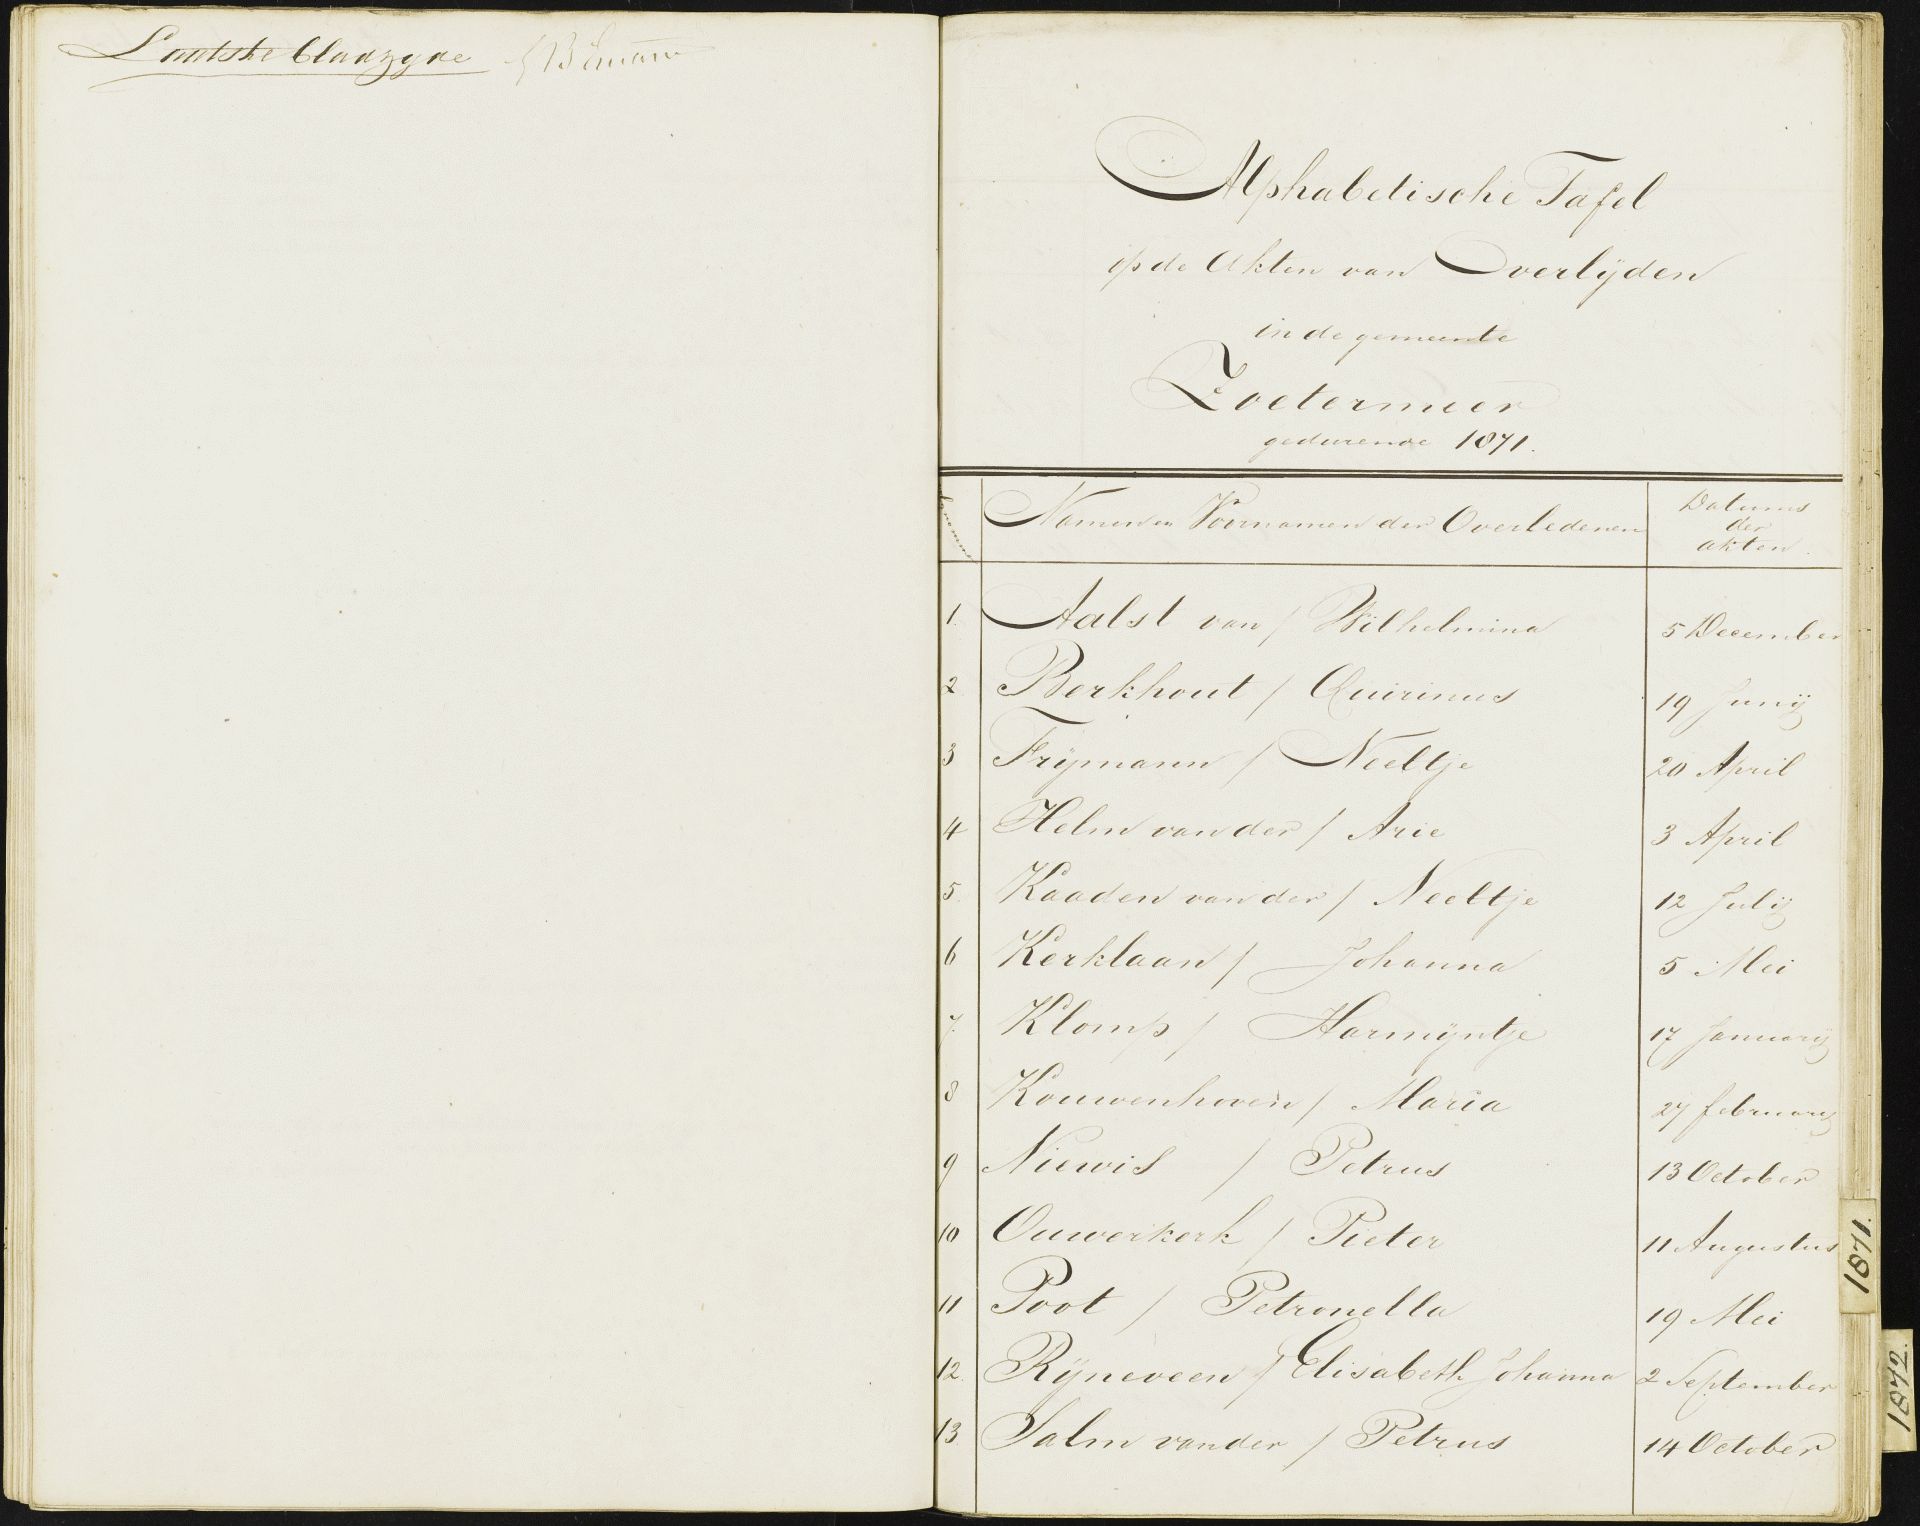 Laatste bladzyde
Alphabetische Tafel
op de Akten van Overlijden
in de gemeente
Zoetermeer
gedurende 1871.
Namen en Voornamen der Overledenen
Datums
der
akten.
1. Aalst van / Wilhelmina 5 December
2. Berkhout / Quirinus 19 Junij
3 Frijmann / Neeltje 20 April
4 Helm van der / Arie 3 April
5. Kaaden van der / Neeltje 12 Julij
6 Kerklaan / Johanna 5 Mei
7. Klomp / Harmijntje 17 Januarij
8 Kouwenhoven / Maria 27 februarij
9 Niewis / Petrus 13 October
10 Ouwerkerk / Pieter 11 Augustus
11 Poot / Petronella 19 Mei
12. Rijneveen / Elisabeth Johanna 2 September
13 Salm van der / Petrus 14 October
1871.
1872.